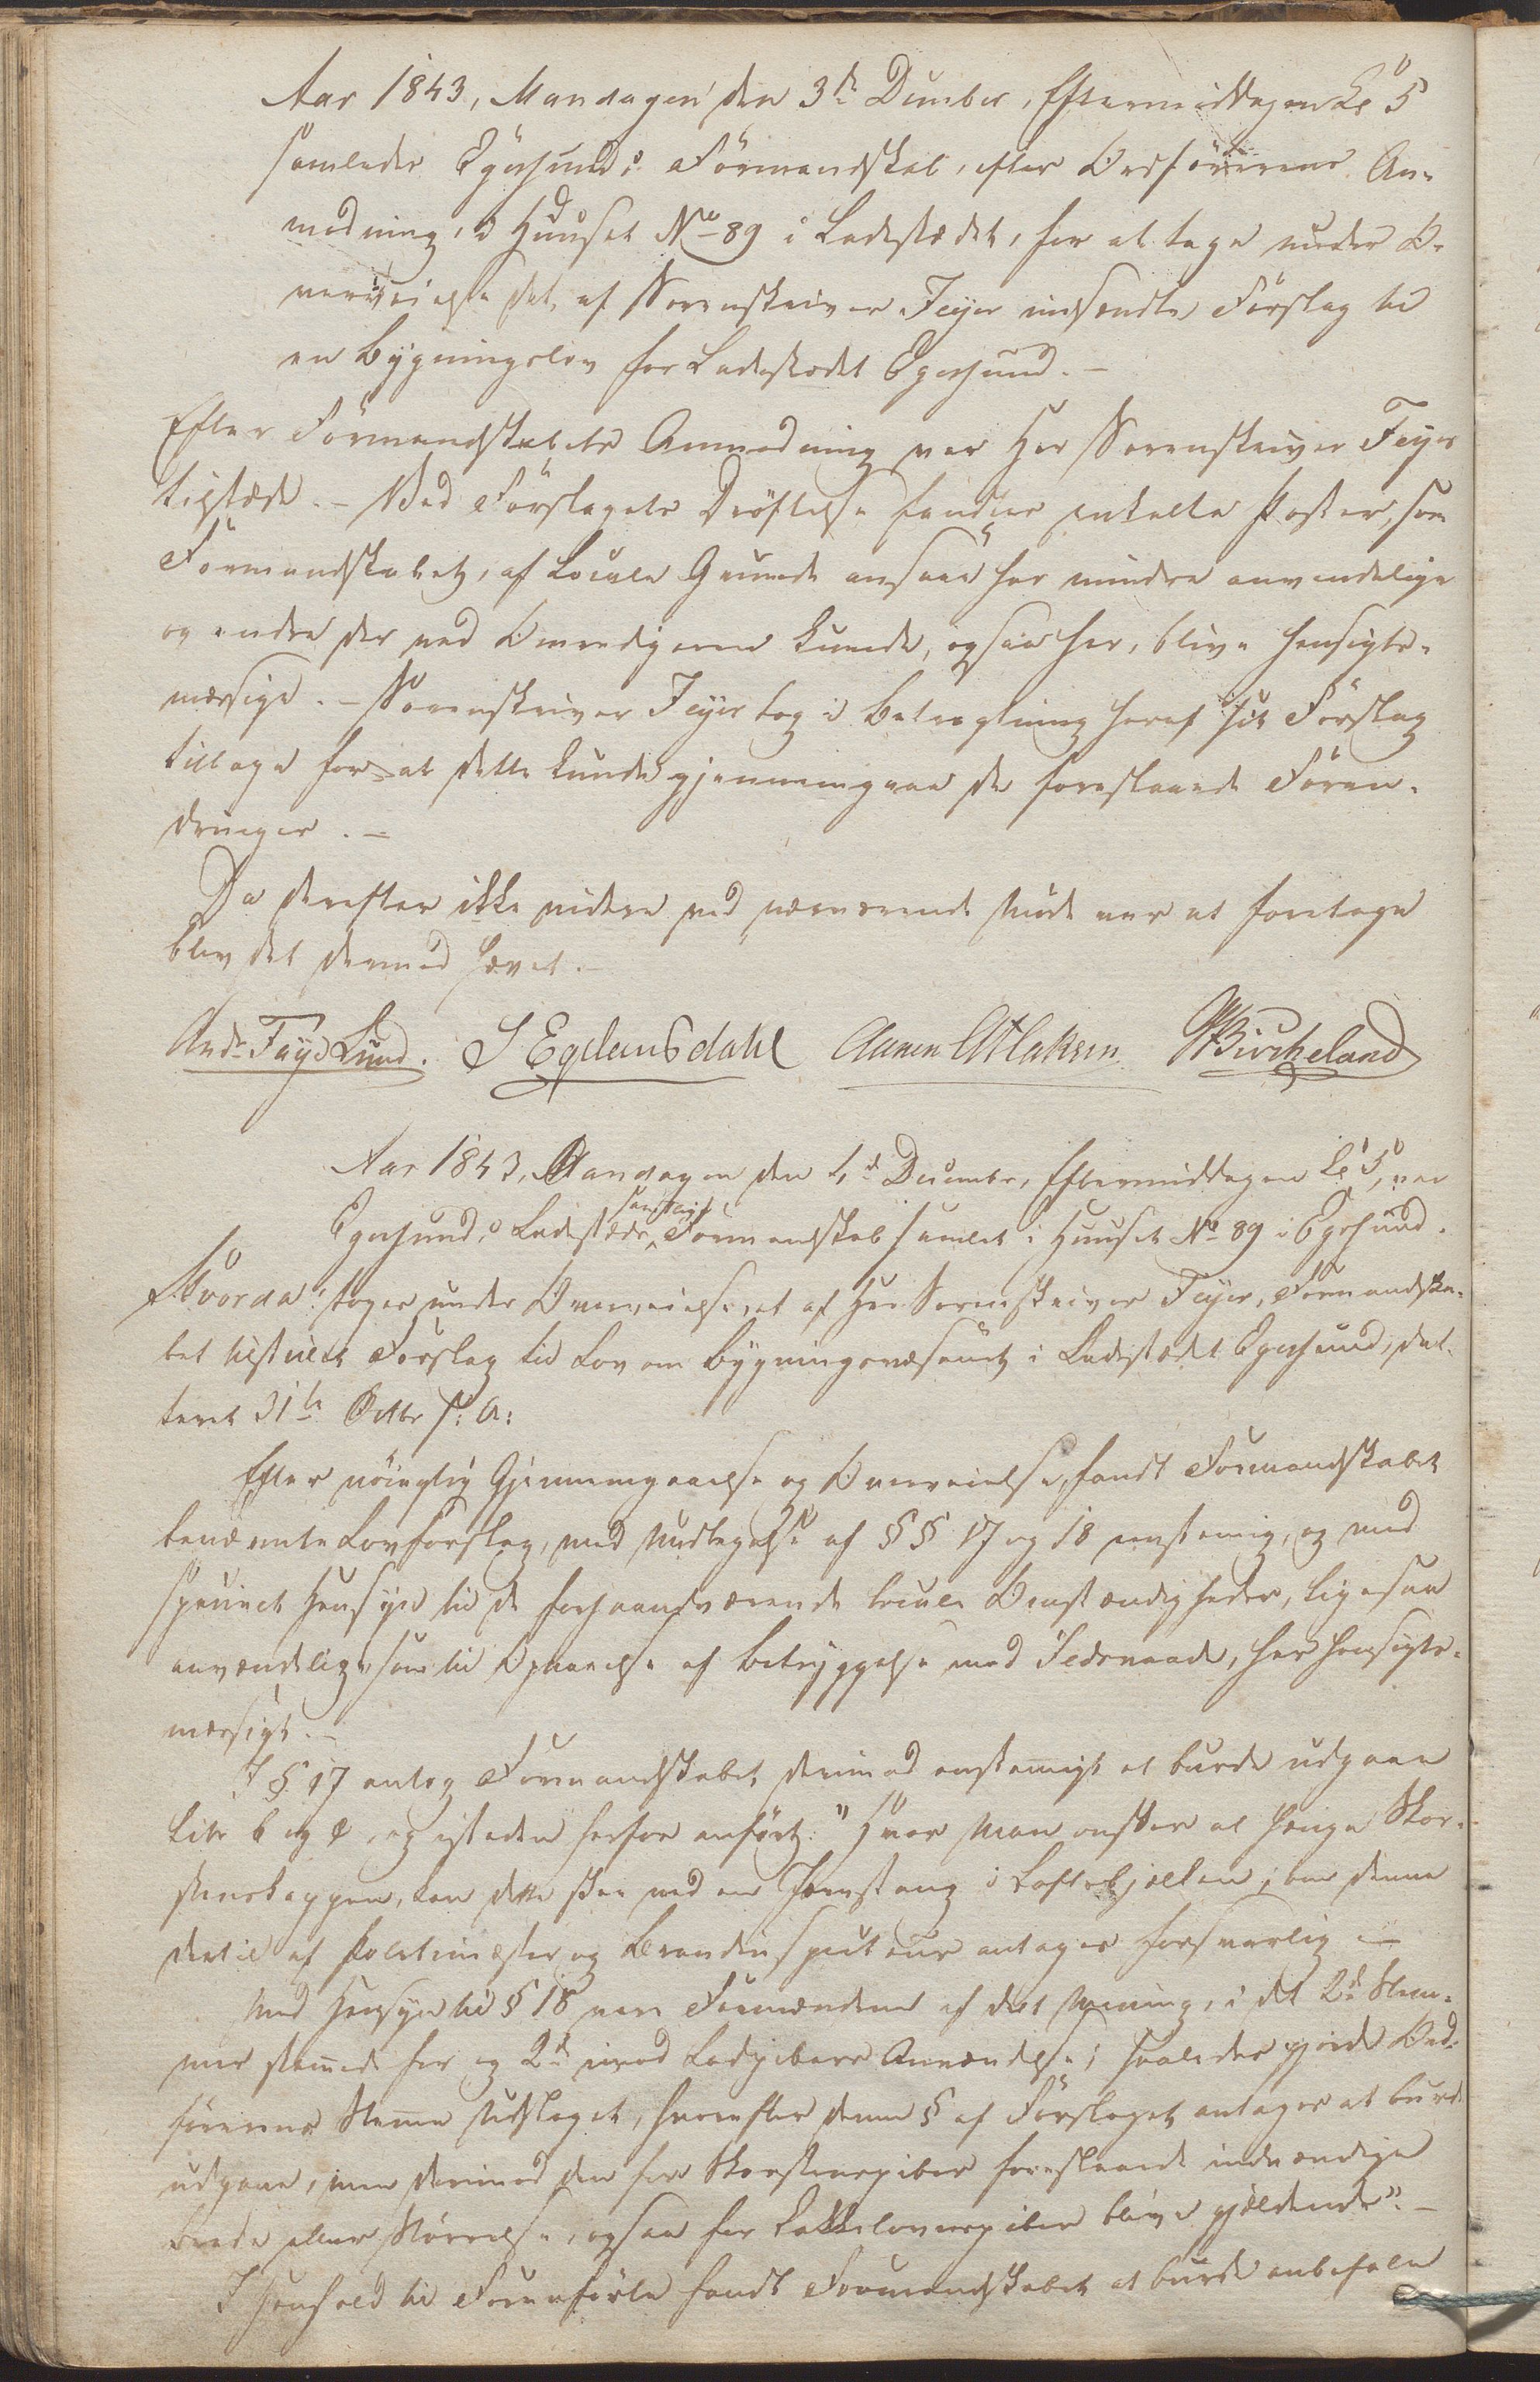 Aar 1843, Mandagen den 3de Decmber, Eftermiddagen Kl 5
samledes Egersunds Formandskab, efter Ordførerens An-
modning, i Huuset No 89 i Ladestedet, for at tage under O-
verveielse det af Sorenskriver Feyer indsendte Forslag til
en Bygningslov for Ladestedet Egersund. –
Efter Formandskabets Anmodning var Hr Sorenskriver Feyer
tilstede. – Ved Forslagets Drøftelse fandtes enkelte Poster, som
Formandskabet, af Locale Grunde ansaae for mindre anvendelige
og andre der ved Omredigeren kunde, ogsaa her, blive hensigts-
mæssige. – Sorenskriver Feyer tog i Betragtning heraf sit Forslag
tilbage for at dette kunde gjennemgaae de foreslaaede Foran-
dringer. –
Da derefter ikke videre ved nærværende Møde var at foretage
blev det dermed hævet. –
Andr. Feyer Lund. S Egdeansdahl Aanen Atlaksen Birckeland
Aar 1843, Mandagen den 4de Decembr, Eftermiddagen Kl 5, var
Egersunds Ladesteds samtlige Formandskab samlet i Huuset No 89 i Egersund.
Hvorda toges under Overveielse et af Hr Sorenskriver Feyer, Formandska-
bet tilstillet Forslag til Lov om Bygningsvæsenet i Ladestedet Egersund, dat-
teret 31te Octbr s: A:
Efter nøiagtig Gjennemgaaelse og Overveielse, fandt Formandskabet
benævnte Lovforslag, med Undtagelse af §§ 17 og 18 eenstemig, og med
specielt Hensyn til de forhaandværende locale Omstændigheder, ligesaa
anvendeligt som til Opnaaelse af Betryggelse mod Ildsvaade, her hensigts-
mæssigt. –
I § 17 antog Formandskabet derimod enstemigt at burde udgaae
Litr b og c, og isteden herfor anført: "Hvor Man ønsker at hænge Skor-
steenskappen, kan dette skee ved en Jernstang i Loftsbjelken, naar denne
dertil af Politimester og Brandinspecteur antages forsvarlig –
Med Hensyn til § 18 vare Formændene af deelt Mening, i det 2de Stem-
mer stemede for og 2de imod Ladpibers Anvendelse; saaledes gjorde Ord-
førerens Steme Udslaget, hvorefter denne § af Forslaget antages at burde
udgaae, men derimod den for Skorsteenspiber foreslaaede indvendige
Brede eller Størrelse, ogsaa for Kakkelovnspiber blive gjeldende". –
I Henhold til Foranførte fandt Formandskabet at burde anbefale